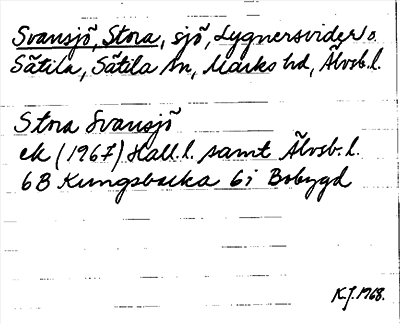 Svansjö, Stora, sjö, Lygnersvider o.
Sätila, Sätila sn, Marks hd, Älvsb.l.
Stora Svansjö
ek (1967) Hall.l. samt Älvsb.l.
6B Kungsbacka 6i Bobygd
K.J. 1968.